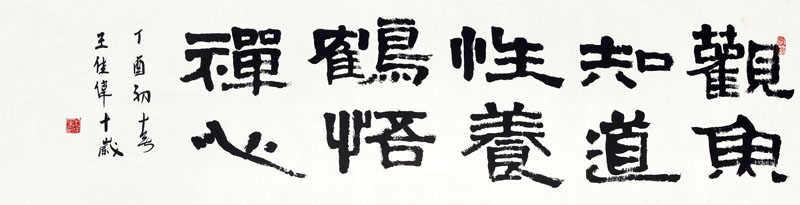 觀魚
知道
性養
鶴悟
禪心
丁酉初春
王佳偉十歲